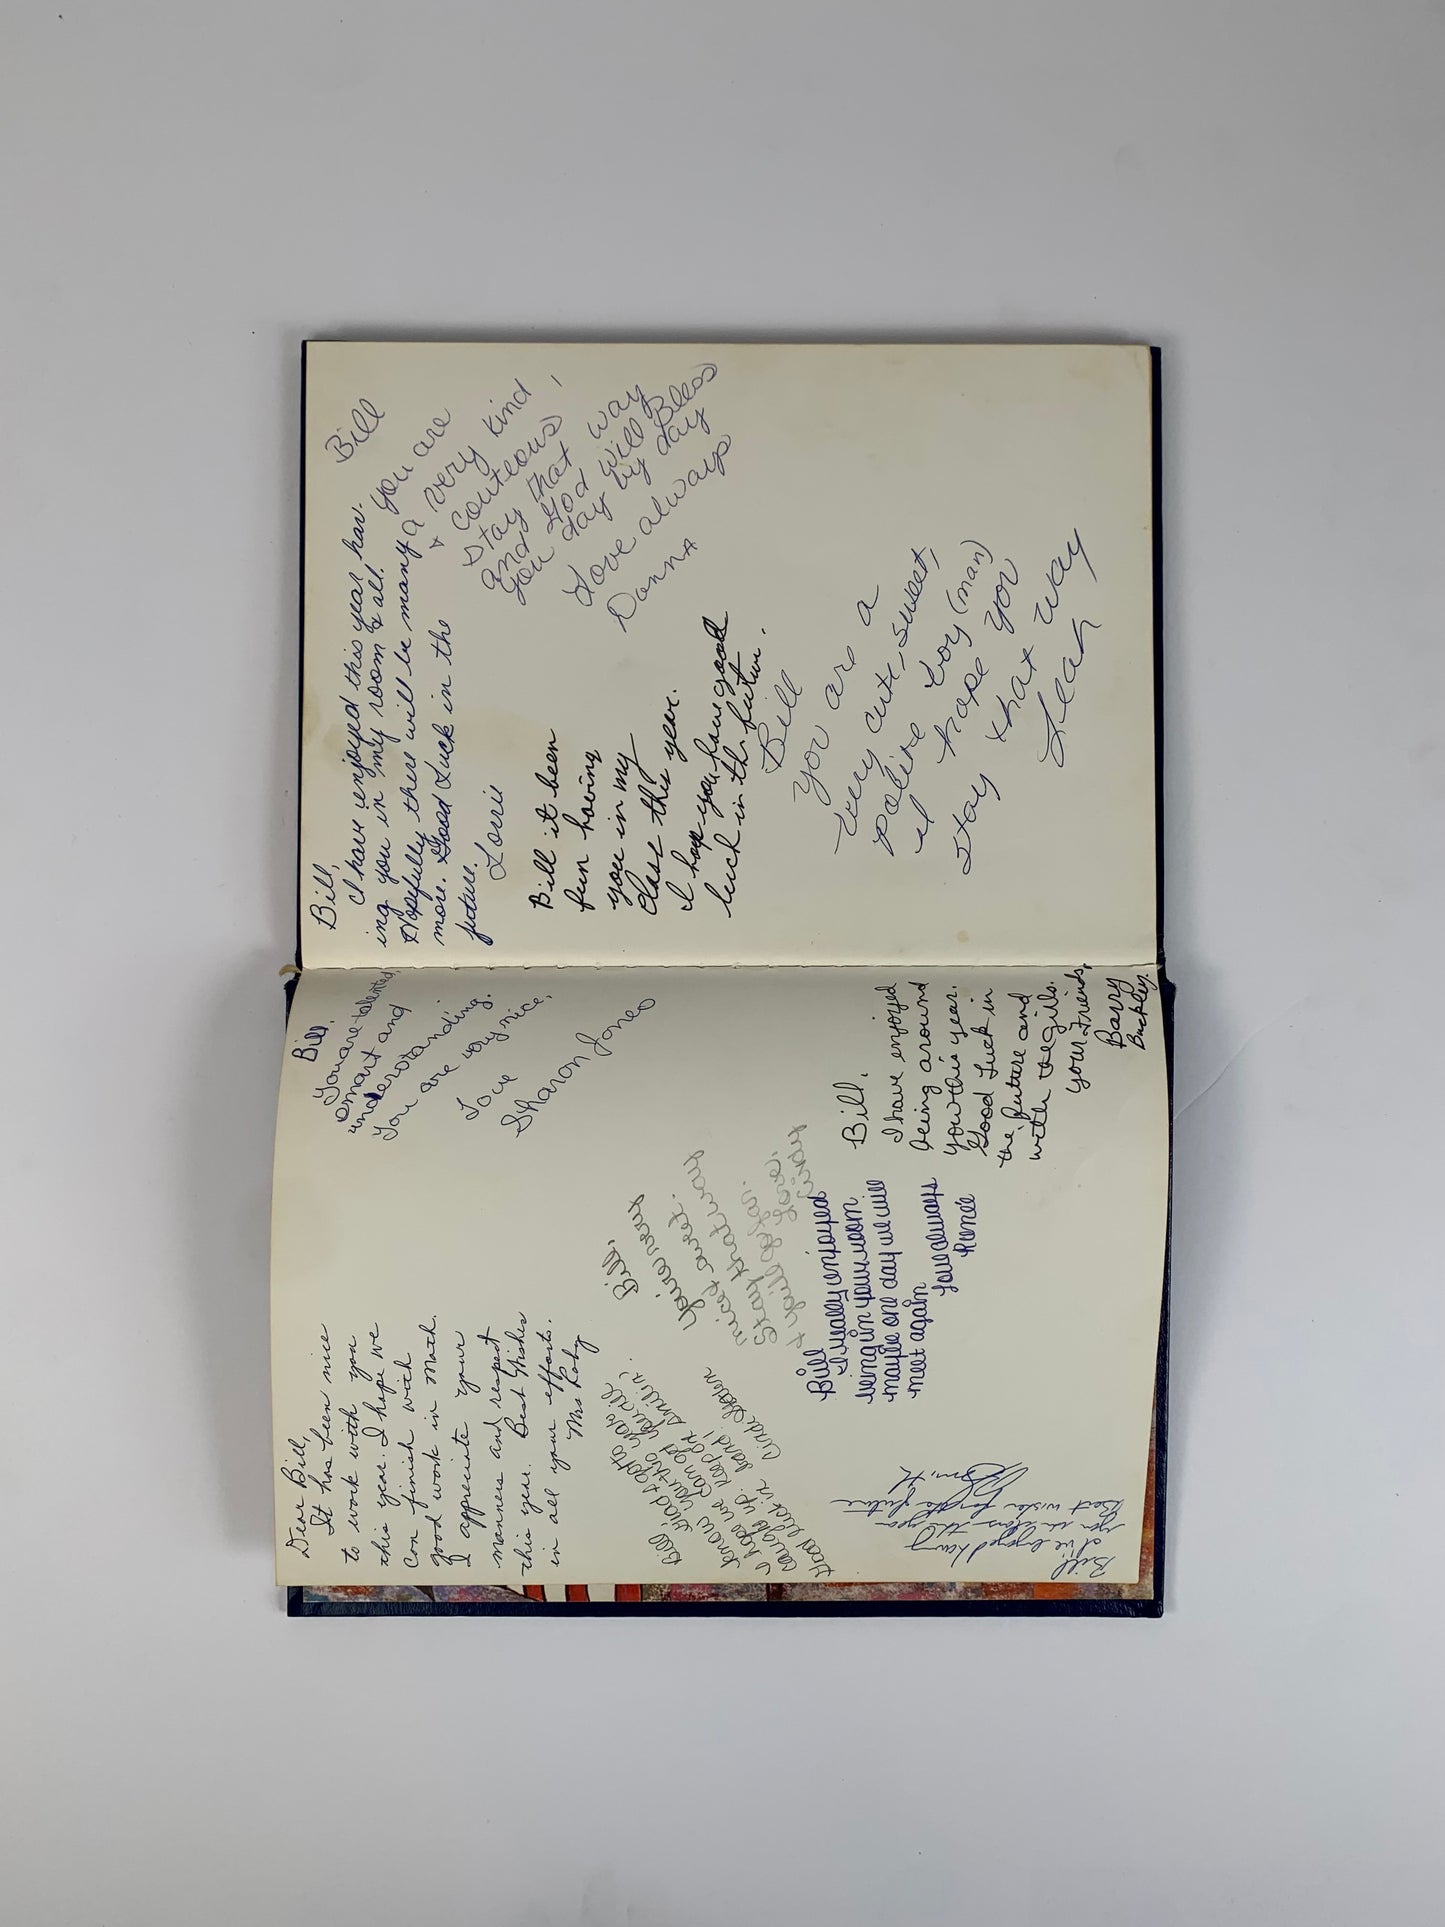 Dear Bill,
It has been nice
to work with you
this year. I hope we
can finish with
good work in math.
I appreciate your
manners and respect
this year. Best Wishes
in all your efforts.
Mrs Roby
Bill,
You are talented,
smart and
understanding.
You are very nice.
Love
Sharon Jones
Bill,
You're very
nice & sweet.
Stay that way
& you'll go far.
Love,
Cindy
Bill, Glad I got to
know you two
I hope we can get
caught up. Keep on smilin'.
Good luck in band!
Cindi
Bill
I really enjoyed
being in your room
maybe one day we will
meet again
Love always
Renée
Bill,
I have enjoyed
being around
you this year.
Good Luck in
the future and
with the girls.
Your Friend,
Barry
Buckley.
Bill,
I've enjoyed having
you in class this year
Best wishes for the future
Smith
Bill,
I have enjoyed this year hav-
ing you in my room & all.
Hopefully there will be many
more. Good Luck in the
future.
Lorrie
Bill
you are
a very kind
+ couteous,
stay that way
and God will Bless
you day by day
Love always
Donna
Bill it been
fun having
you in my
class this year.
I hope you have good
luck in the future.
Bill
You are a
very cute, sweet,
polite boy (man)
I hope you
stay that way
Leah